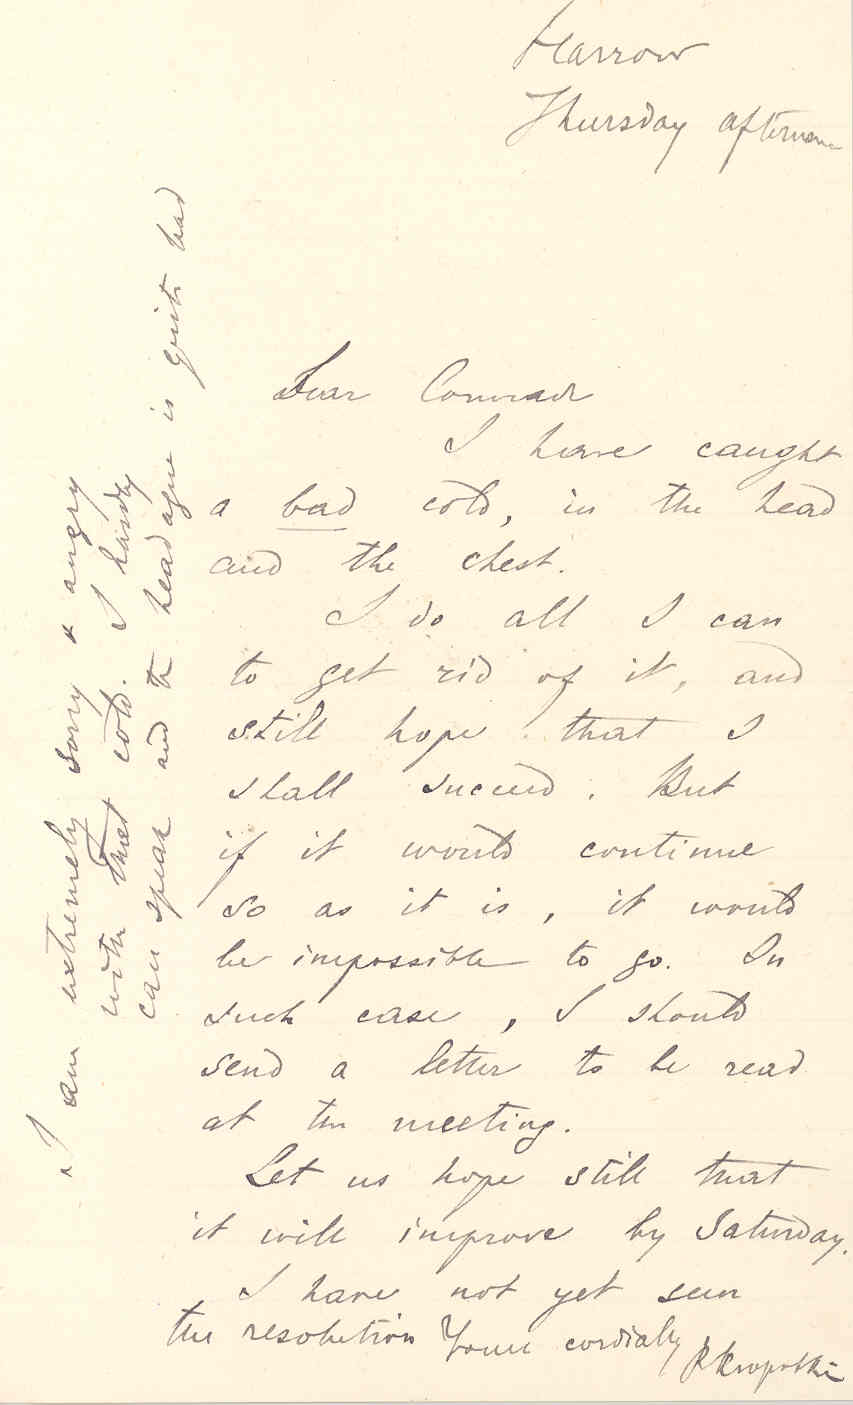 Harrow
Thursday afternoon
Dear Comrade
I have caught
a bad cold, in the head
and the chest.
I do all I can
to get rid of it, and
still hope that I
shall succeed. But
if it would continue
so as it is, it would
be impossible to go. In
such case, I should
send a letter to be read
at the meeting.
Let us hope still that
it will improve by Saturday.
I have not yet seen
the resolution Yours cordially P Kropotkin
I am extremely sorry & angry
with that cold. I hardly
can speak and the headague is quite bad